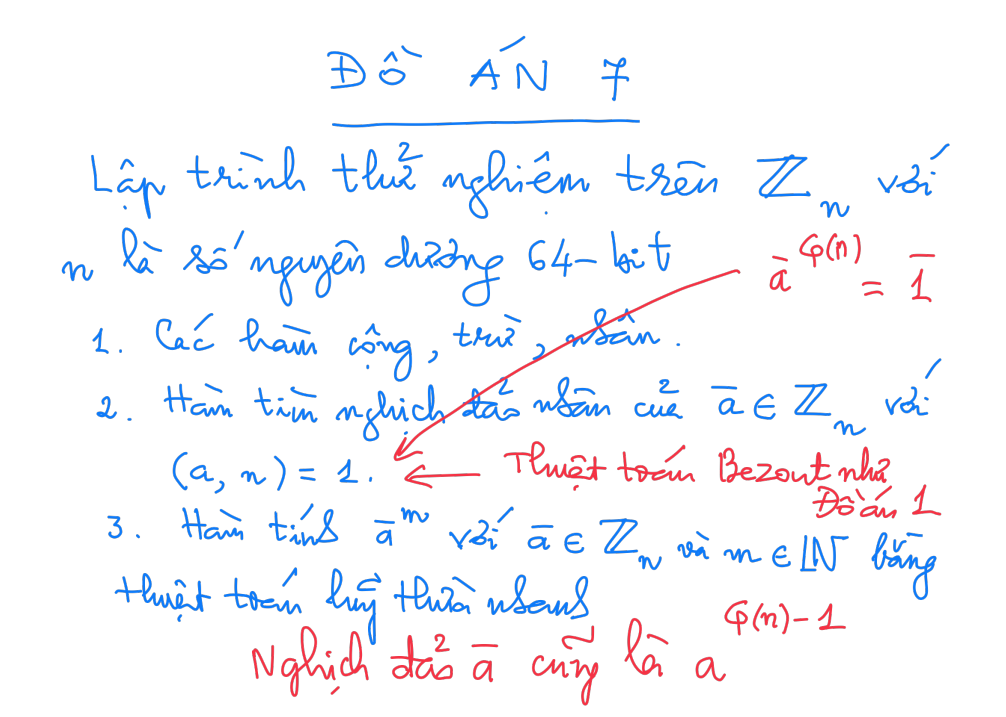 ĐỒ ÁN 7
Lập trình thử nghiệm trên ℤₙ với
n là số nguyên dương 64-bit
ā^φ(n) = 1̄
1. Các hàm cộng, trừ, nhân.
2. Hàm tìm nghịch đảo nhân của ā ∈ ℤₙ với
(a, n) = 1. ← Thuật toán Bezout như
Đồ án 1
3. Hàm tính ā^m với ā ∈ ℤₙ và m ∈ ℕ bằng
thuật toán luỹ thừa nhanh
Nghịch đảo ā cũng là a^φ(n)-1